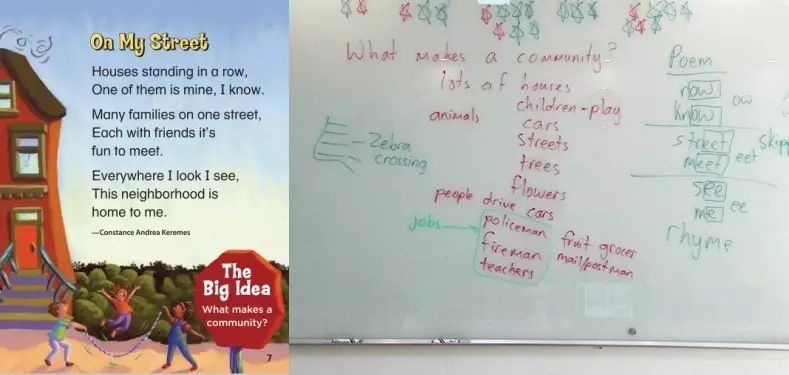 On My Street
Houses standing in a row,
One of them is mine, I know.
Many families on one street,
Each with friends it's
fun to meet.
Everywhere I look I see,
This neighborhood is
home to me.
—Constance Andrea Keremes
The
Big Idea
What makes a
community?
7
What makes a community?
lots of houses
animals children-play
cars
streets
Zebra
crossing
trees
flowers
people drive cars
jobs → policeman fruit grocer
fireman mail/postman
teachers
Poem
row
know
ow
street
meet
eet
skipp
see
me
ee
rhyme